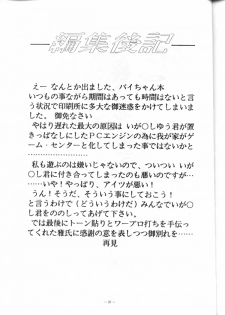 編集後記
えー なんとか出ました、パイちゃん本
いつもの事ながら期間はあっても時間はないと言
う状況で印刷所に多大な御迷惑をかけてしまいま
した。 御免なさい
やはり遅れた最大の原因は いが○しゆう君が置
きっぱなしにしたPCエンジンの為に我が家がゲ
ーム・センターと化してしまった事ではないかと
・・・・・・・・・・・・・・・・・・・・・
私も遊ぶのは嫌いじゃないので、ついつい いが
○し君に付き合ってしまったのも悪いのですが…
いや！やっぱり、アイツが悪い！
うん！そうだ、そういう事にしておこう！
と言うわけで（どういうわけだ）みんなでいが○
し君をののしってあげて下さい。
では最後にトーン貼りとワープロ打ちを手伝っ
てくれた雅氏に感謝の意を表しつつ御別れを・・
再見